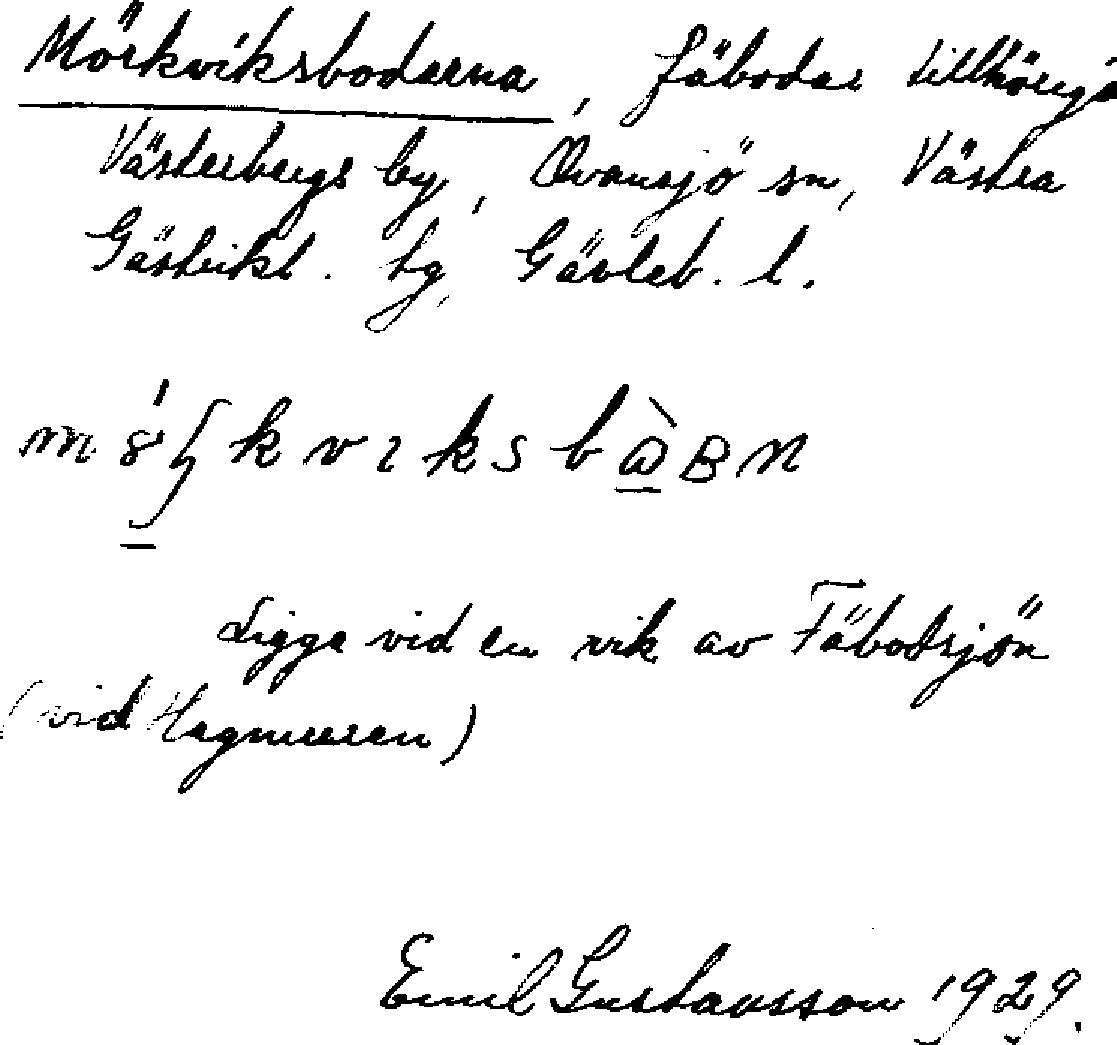 Mörkviksbodarna, fäbodar tillhöriga
Västerbergs by, Ovansjö sn, Västra
Gästrikl. tg, Gävleb. l.
Ligga vid en vik av Fäbodsjön
(vid Hagmuren)
Emil Gustavsson 1929.